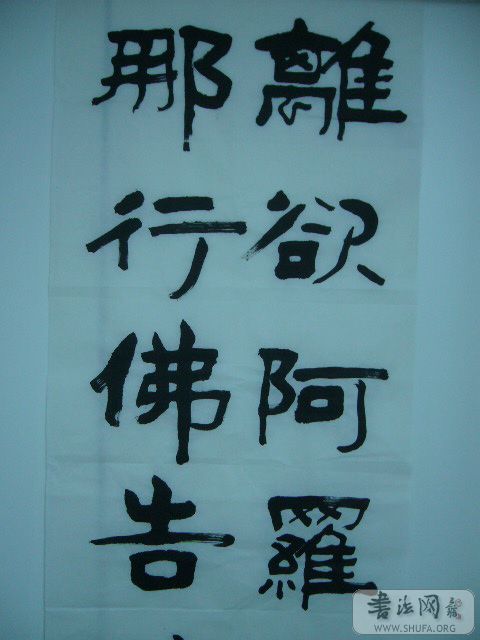 離欲阿羅
那行佛告
书法网
WWW.SHUFA.ORG